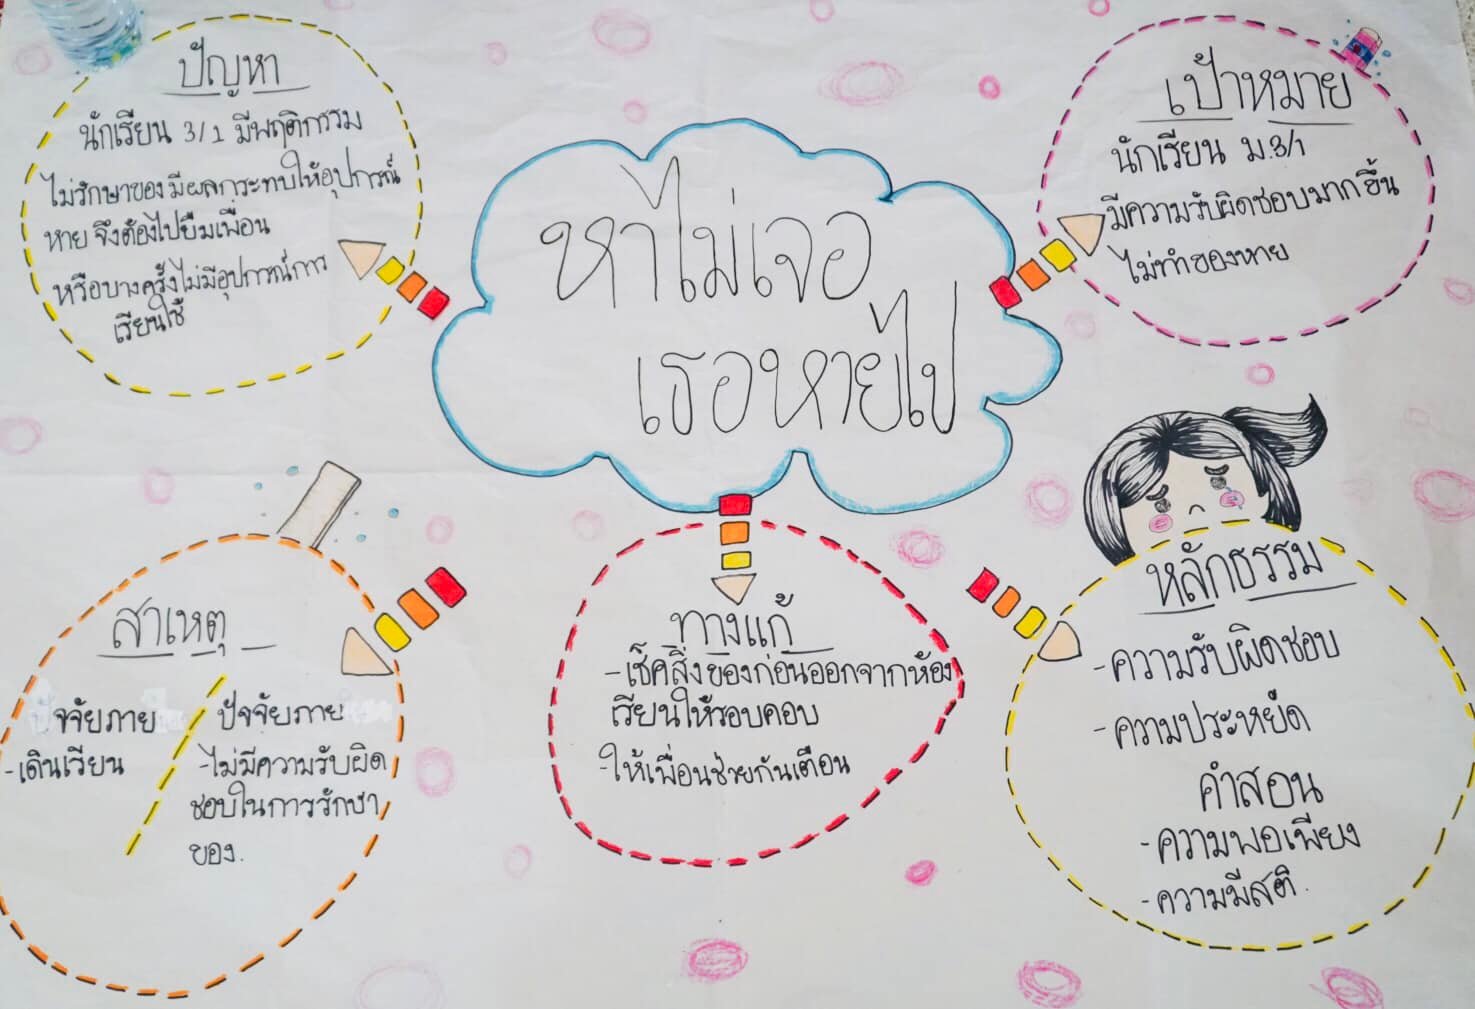 หาไม่เจอ
เธอหายไป
ปัญหา
นักเรียน 3/1 มีพฤติกรรม
ไม่รักษาของ มีผลกระทบให้อุปกรณ์
หาย จึงต้องไปยืมเพื่อน
หรือบางครั้งไม่มีอุปกรณ์การ
เรียนใช้
เป้าหมาย
นักเรียน ม.3/1
มีความรับผิดชอบมากขึ้น
ไม่ทำของหาย
สาเหตุ
ปัจจัยภาย
-เดินเรียน
ปัจจัยภาย
-ไม่มีความรับผิด
ชอบในการรักษา
ของ.
ทางแก้
-เช็คสิ่งของก่อนออกจากห้อง
เรียนให้รอบคอบ
-ให้เพื่อนช่วยกันเตือน
หลักธรรม
-ความรับผิดชอบ
-ความประหยัด
คำสอน
-ความพอเพียง
-ความมีสติ.